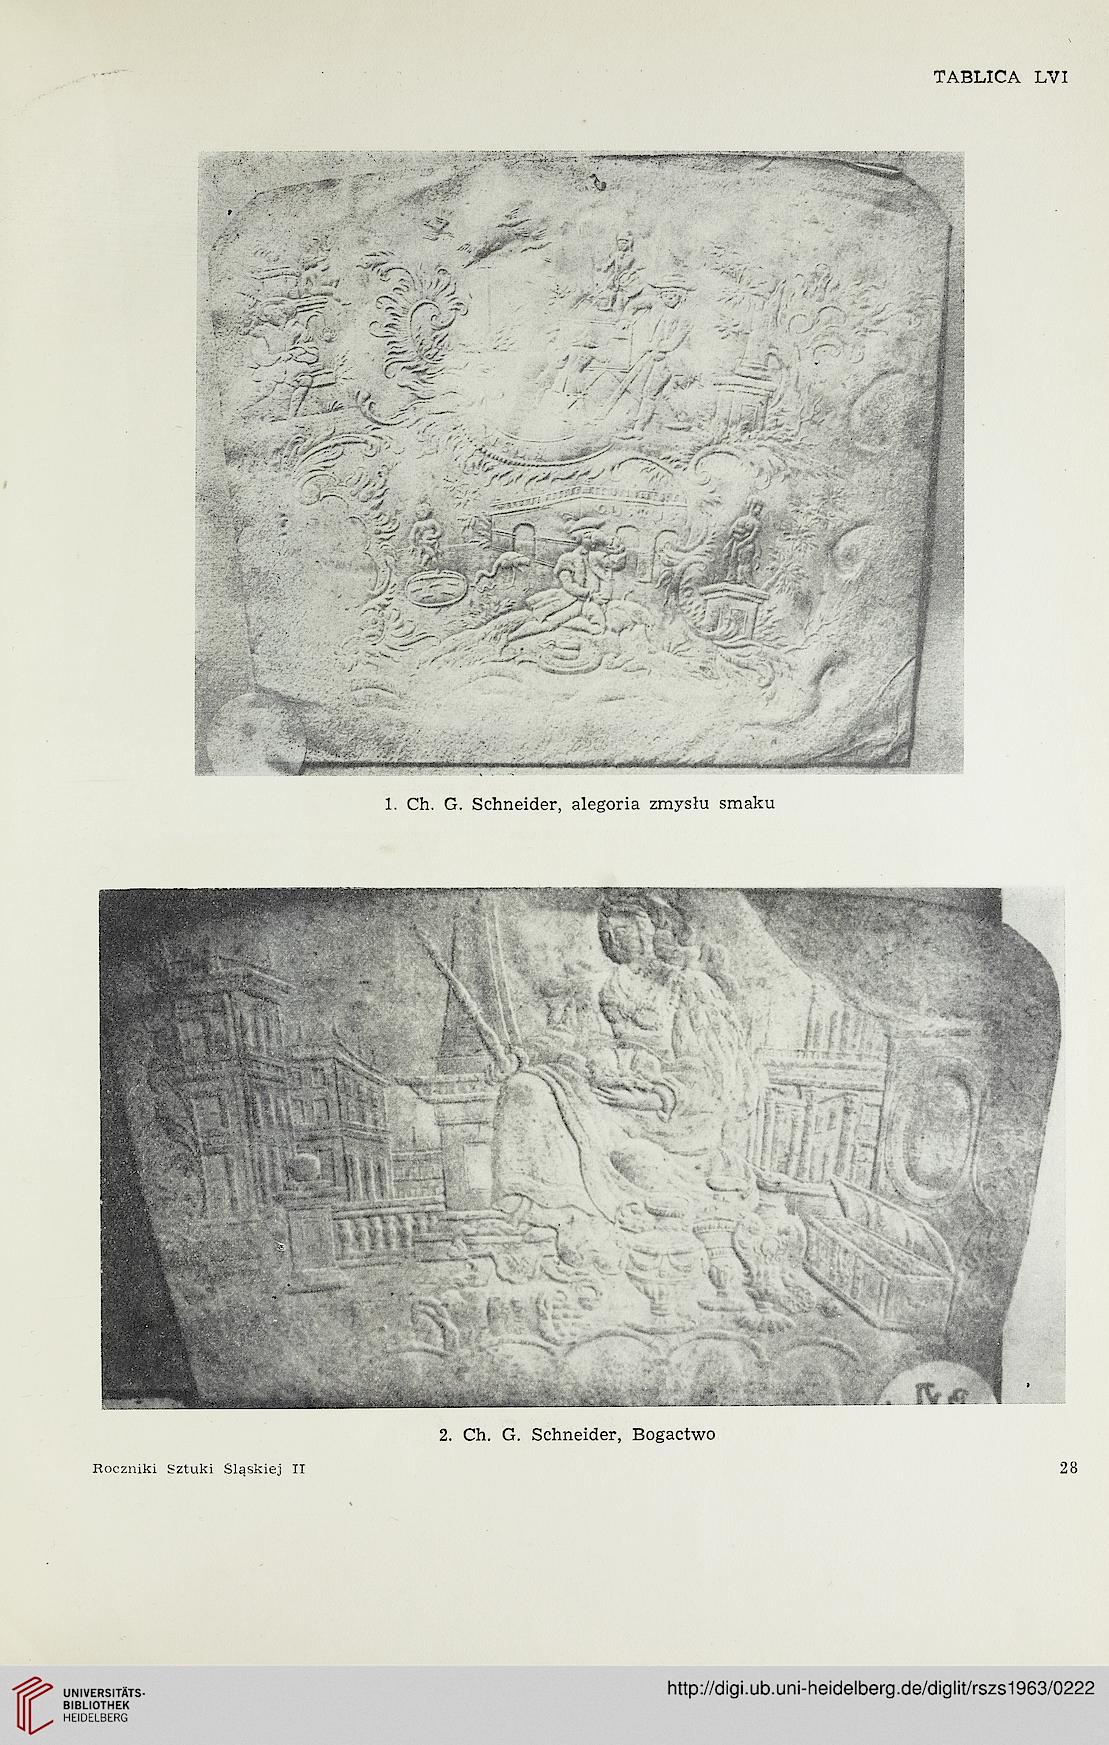 TABLICA LVI
1. Ch. G. Schneider, alegoria zmysłu smaku
2. Ch. G. Schneider, Bogactwo
Roczniki Sztuki Śląskiej II
28
UNIVERSITÄTS-
BIBLIOTHEK
HEIDELBERG
http://digi.ub.uni-heidelberg.de/diglit/rszs1963/0222